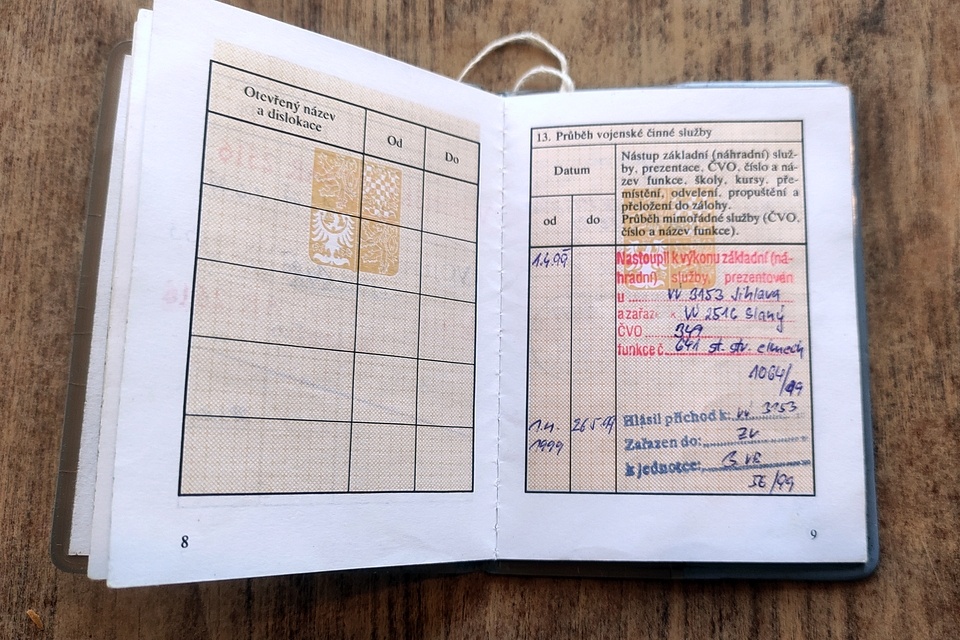 Otevřený název
a dislokace
Od
Do
8
13. Průběh vojenské činné služby
Datum
od
do
Nástup základní (náhradní) služ-
by, prezentace, ČVO, číslo a ná-
zev funkce, školy, kursy, pře-
místění, odvelení, propuštění a
přeložení do zálohy.
Průběh mimořádné služby (ČVO,
číslo a název funkce).
1.4.99
Nastoupil k výkonu základní (ná-
hradní) služby, prezentován
u VÚ 3153 Jihlava
a zařaz. VÚ 2516 Slaný
ČVO 349
funkce č. 641 st. stv.
1064/99
1.4.
1999
26.5.99
Hlásil příchod k: VÚ 3153
Zařazen do:
k jednotce:
56/99
9